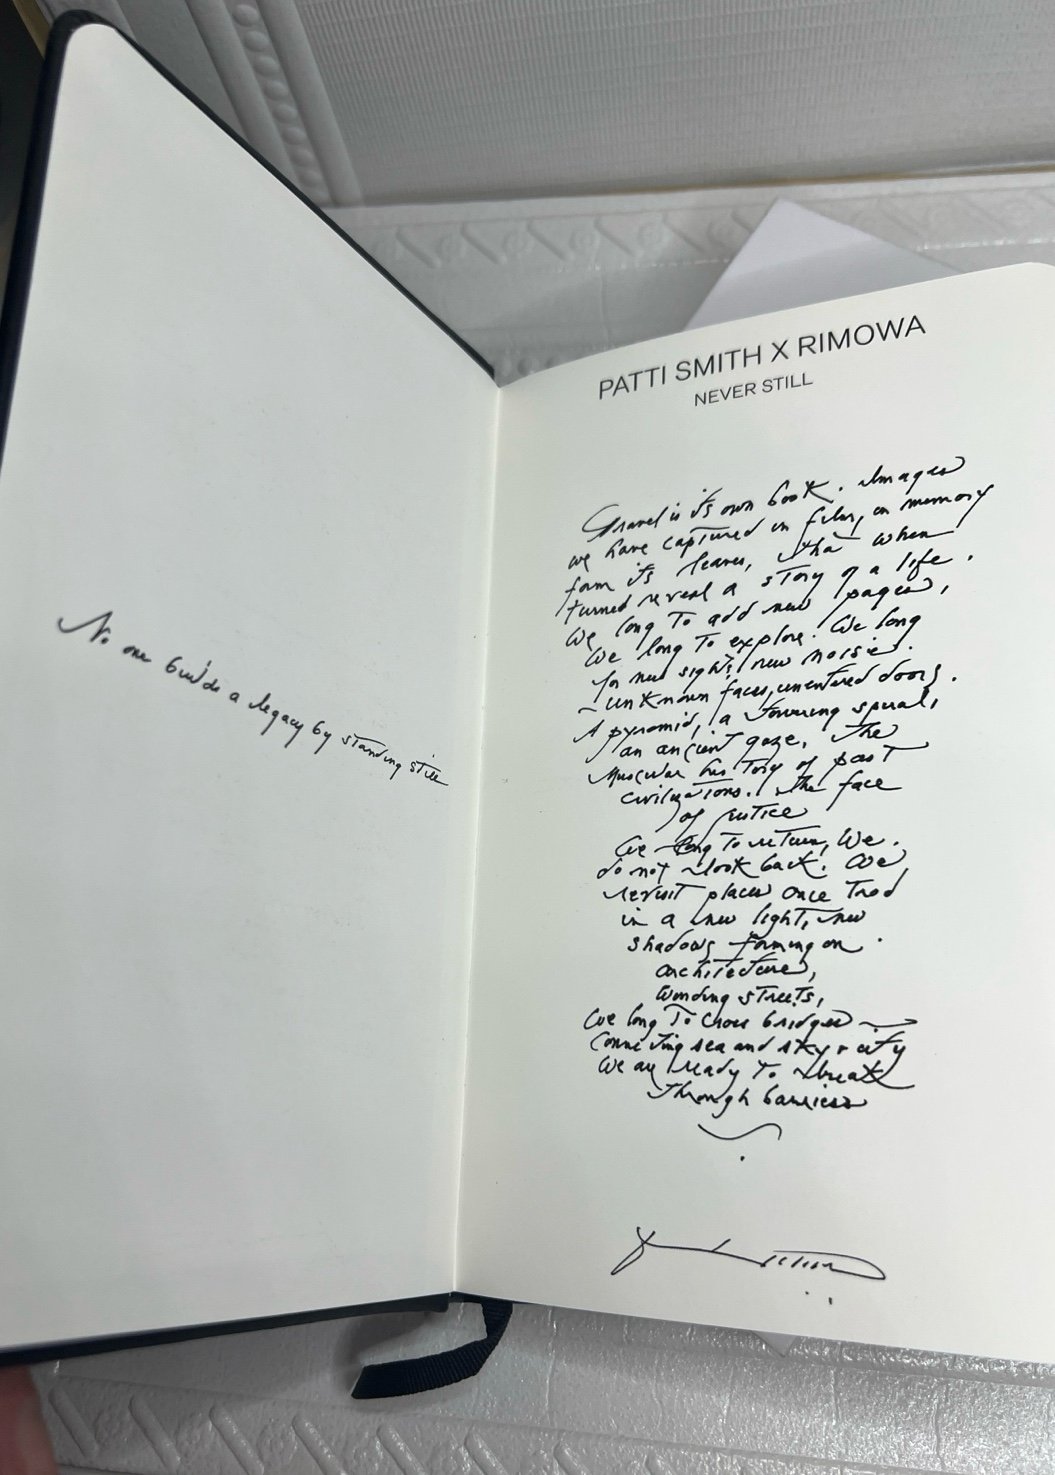 No one builds a legacy by standing still
PATTI SMITH X RIMOWA
NEVER STILL
Travel is its own book. Images
we have captured in film, in memory
form its leaves, tha when
turned reveal a story of a life.
We long to add new pages,
We long to explore. We long
for new sights, new noises.
unknown faces, unentered doors.
A pyramid, a towering spiral,
an ancient gaze, the
muscular history of past
civilizations. The face
of justice
We long to return, We
do not look back. We
revisit places once trod
in a new light, new
shadows forming on
architecture,
winding streets,
We long to cross bridges
connecting sea and sky + city
We are ready to break
through barriers